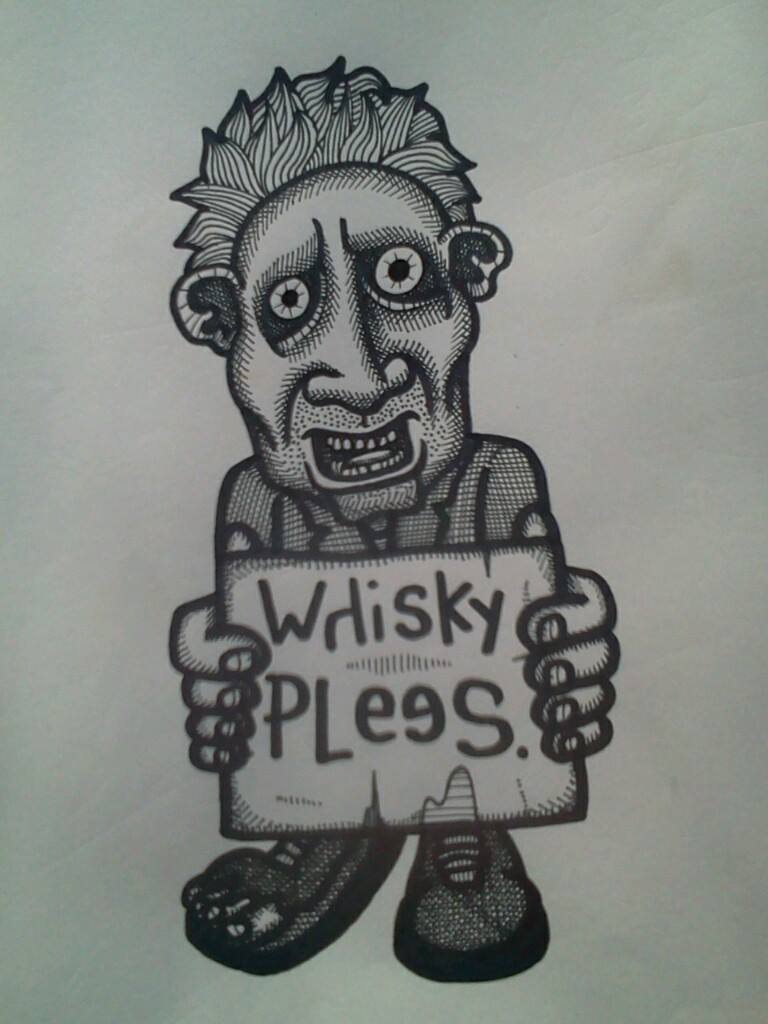 WHisky
PLees.